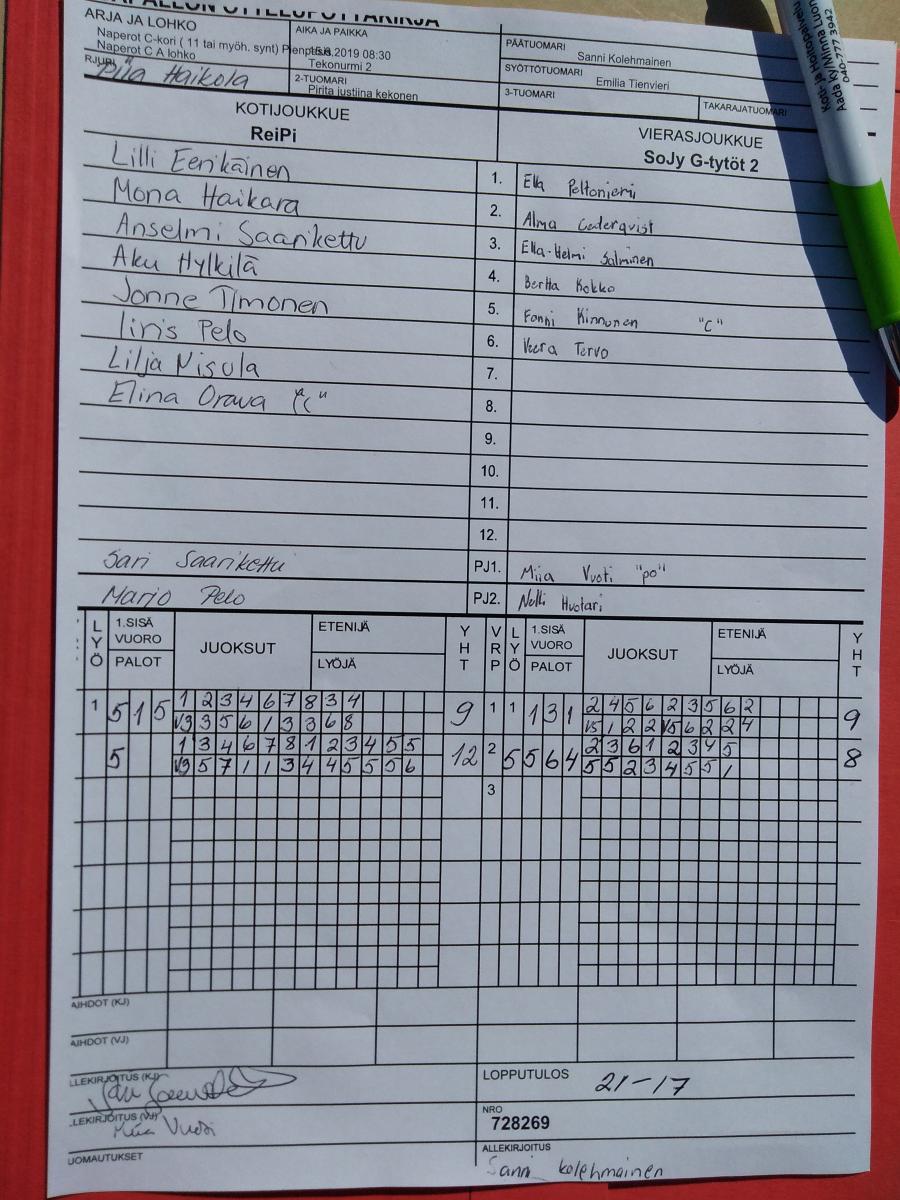 ARJA JA LOHKO
Naperot C-kori ( 11 tai myöh. synt) Pienp
Naperot C A lohko
RJURI
Piia Haikola
AIKA JA PAIKKA
2019 08:30
Tekonurmi 2
2-TUOMARI
Pirita justiina kekonen
PÄÄTUOMARI
Sanni Kolehmainen
SYÖTTÖTUOMARI
Emilia Tienvieri
3-TUOMARI
TAKARAJATUOMARI
Koti- ja Hoitopalvelu
Aada Ky/Minna Luon
040-777 3942
KOTIJOUKKUE
ReiPi
VIERASJOUKKUE
SoJy G-tytöt 2
Lilli Eerikäinen 1. Ella Peltoniemi
Mona Haikara 2. Alma Cederqvist
Anselmi Saarikettu 3. Ella-Helmi Salminen
Aku Hylkilä 4. Bertta Kokko
Jonne Timonen 5. Fanni Kinnunen "C"
Iiris Pelo 6. Veera Tervo
Lilja Nisula 7.
Elina Orava "C" 8.
9.
10.
11.
12.
Sari Saarikettu PJ1. Miia Vuoti "po"
Marjo Pelo PJ2. Nelli Huotari
LYÖ 1.SISÄ VUORO PALOT JUOKSUT ETENIJÄ LYÖJÄ YHT VRP LYÖ 1.SISÄ VUORO PALOT JUOKSUT ETENIJÄ LYÖJÄ YHT
1 5 1 5 1 2 3 4 6 7 8 3 4 9 1 1 1 3 1 2 4 5 6 2 3 5 6 2 9
V3 3 5 6 1 3 3 6 8 V5 1 2 2 V5 6 2 2 4
5 1 3 4 6 7 8 1 2 3 4 5 5 12 2 5 5 6 4 2 3 6 1 2 3 4 5 8
V3 5 7 1 1 3 4 4 5 5 5 6 5 5 2 3 4 5 5 1
3
AIHDOT (KJ)
AIHDOT (VJ)
LLEKIRJOITUS (KJ)
LOPPUTULOS 21-17
LLEKIRJOITUS (VJ)
Miia Vuoti
NRO
728269
UOMAUTUKSET
ALLEKIRJOITUS
Sanni kolehmainen